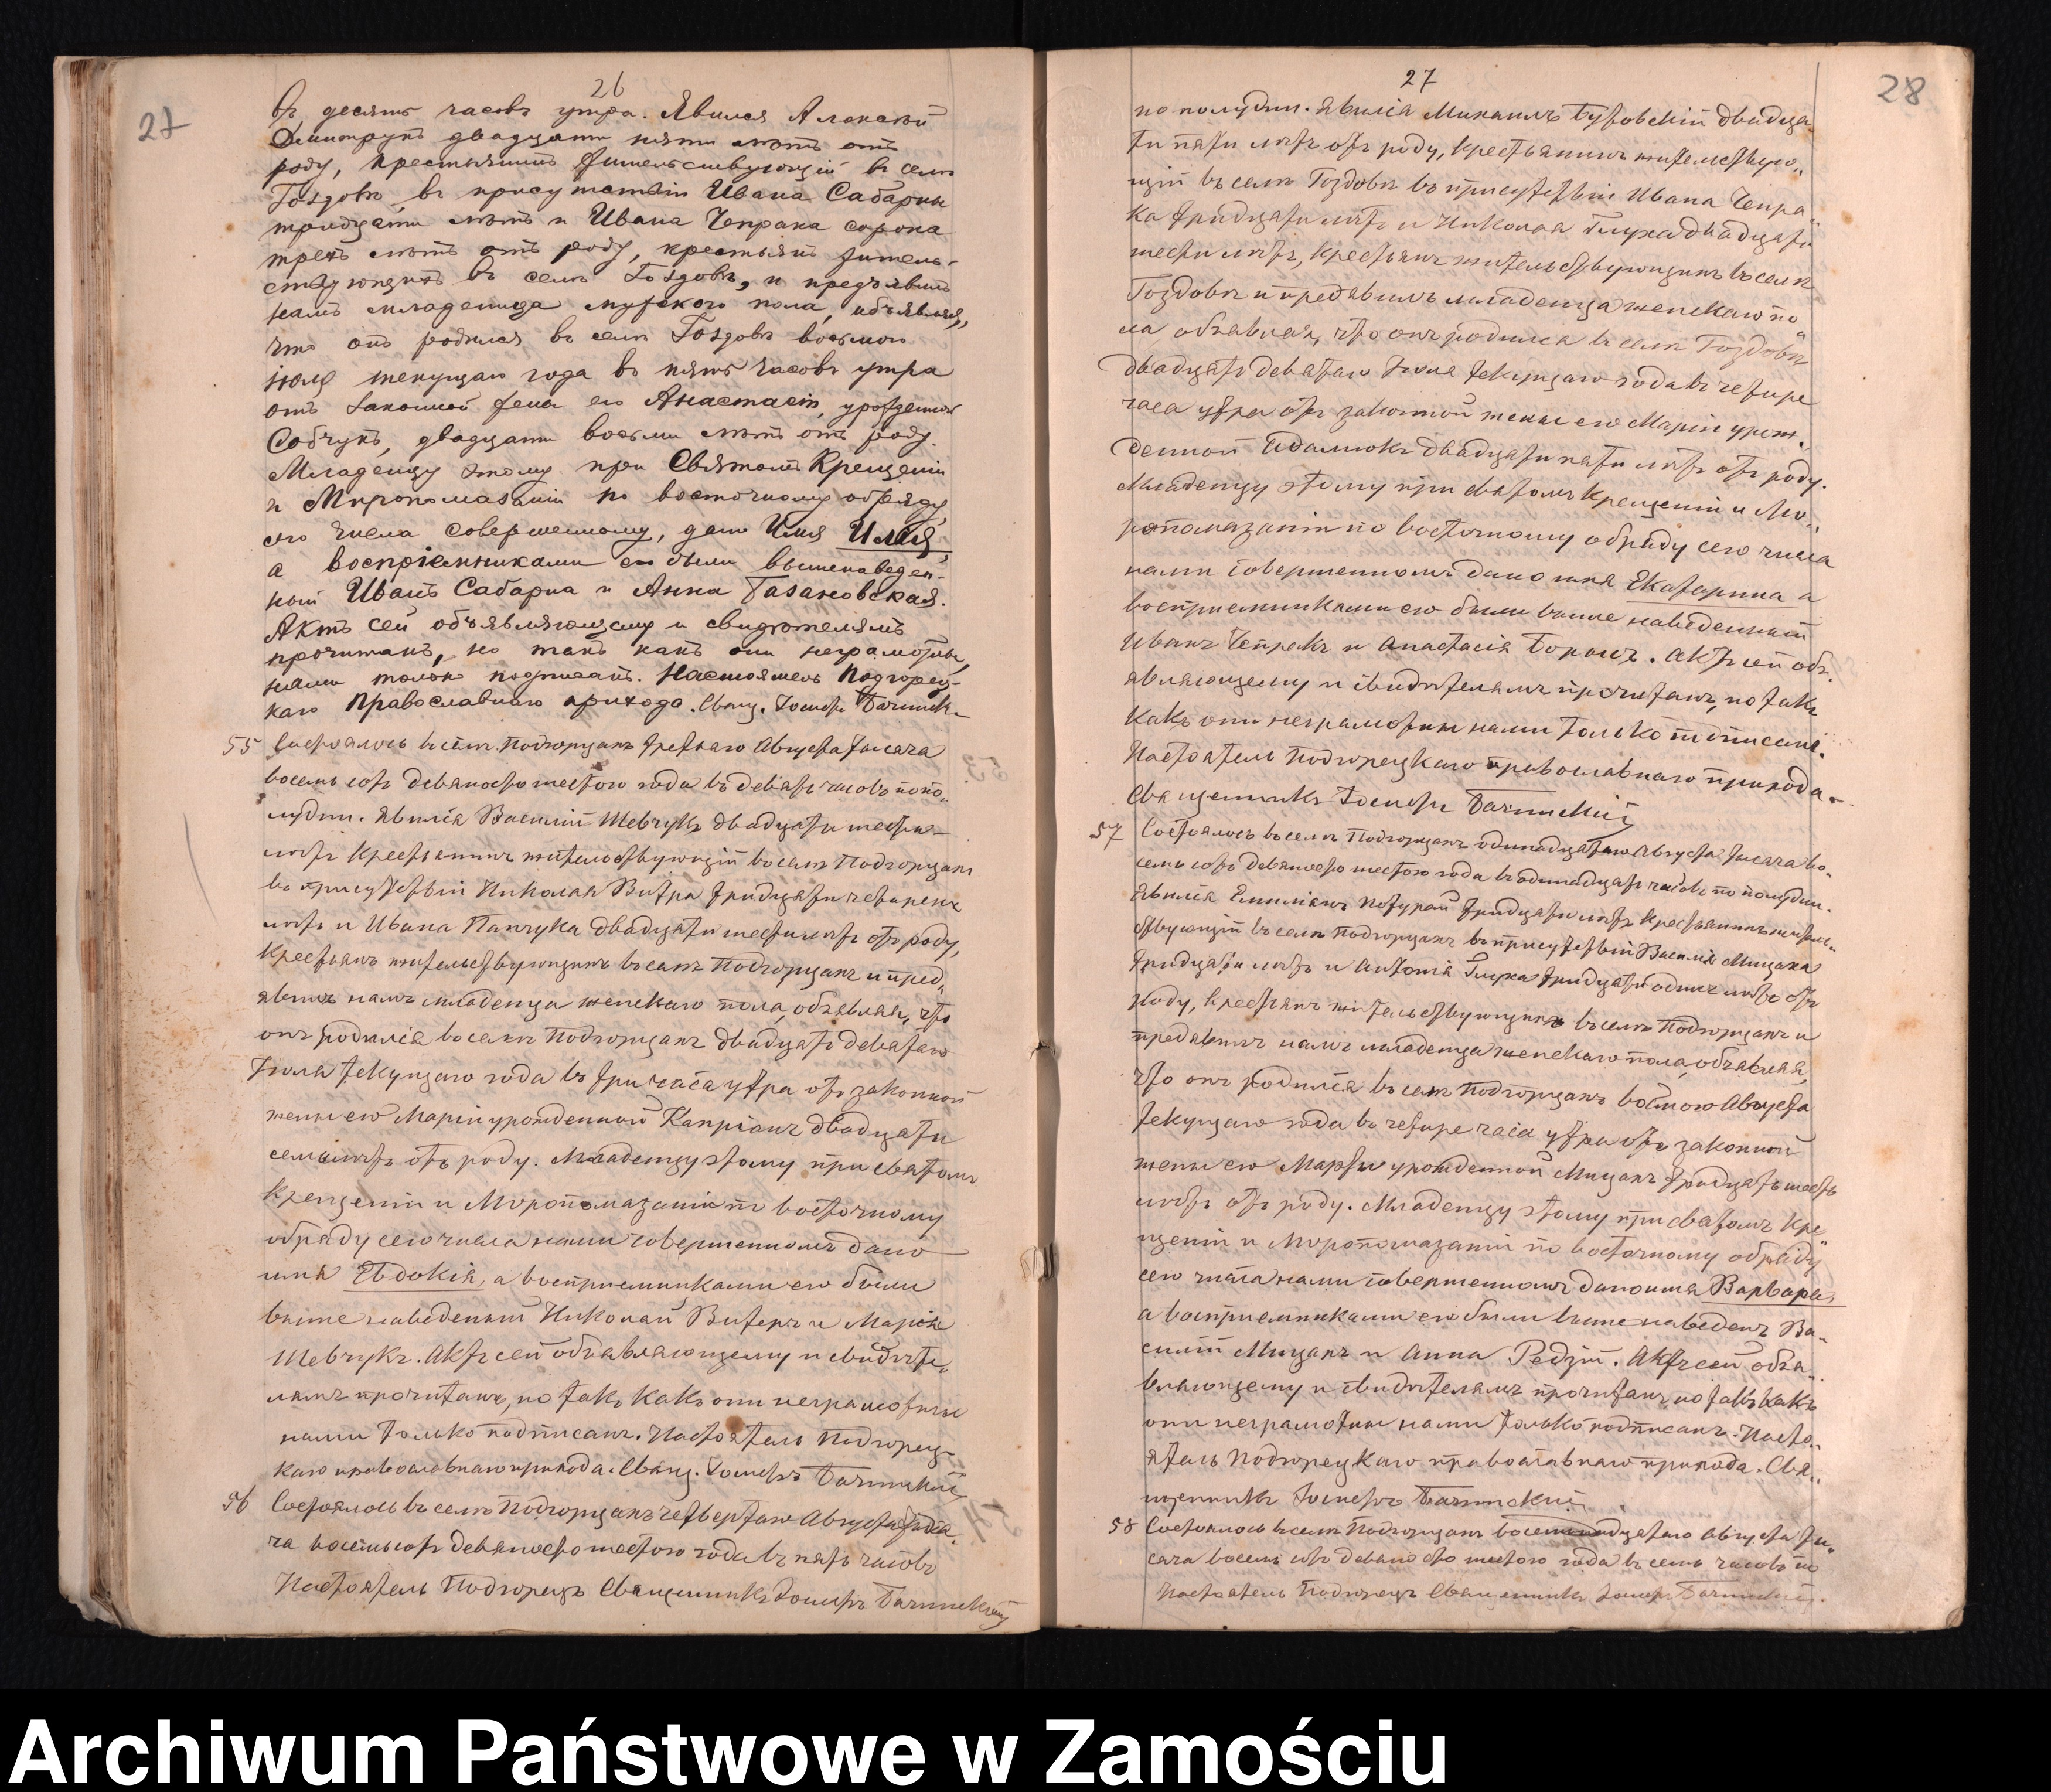 26
27
въ десять часовъ утра. Явился Алексѣй
Дмитрукъ двадцати пяти лѣтъ отъ
роду, крестьянинъ жительствующій въ селѣ
Гоздовѣ, въ присутствіи Ивана Сабарны
тридцати лѣтъ и Ивана Чепрака сорока
трехъ лѣтъ отъ роду, крестьянъ житель-
ствующихъ въ селѣ Гоздовѣ, и предъявилъ
намъ младенца мужскаго пола, объявляя,
что онъ родился въ селѣ Гоздовѣ восьмаго
Іюля текущаго года въ пять часовъ утра
отъ законной жены его Анастасіи, урожденной
Собчукъ, двадцати восьми лѣтъ отъ роду.
Младенцу этому при Святомъ Крещеніи
и Миропомазаніи по восточному обряду
сего числа совершенному, дано Имя Илія,
а воспріемниками его были вышенаведен-
ный Иванъ Сабарна и Анна Базановская.
Актъ сей объявляющему и свидѣтелямъ
прочитанъ, но такъ какъ они неграмотны,
нами только подписанъ. Настоятель Подгорец-
каго Православнаго прихода. Свящ. Іосифъ Бачинск
55 Состоялось въ селѣ Подгорцахъ третьяго Августа тысяча
восемь сотъ девяносто шестого года въ девять часовъ попо-
лудни. Явился Василій Шевчукъ двадцати шести
лѣтъ крестьянинъ жительствующій въ селѣ Подгорцахъ
въ присутствіи Николая Витра тридцати четырехъ
лѣтъ и Ивана Панчука двадцати шести лѣтъ отъ роду,
крестьянъ жительствующихъ въ селѣ Подгорцахъ и пред-
явилъ намъ младенца женскаго пола, объявляя, что
онъ родился въ селѣ Подгорцахъ двадцать девятаго
Іюля текущаго года въ три часа утра отъ законной
жены его Маріи урожденной Капріанъ двадцати
семи лѣтъ отъ роду. Младенцу этому при святомъ
Крещеніи и Моропомазаніи по восточному
обряду сего числа нами совершенномъ дано
имя Евдокія, а восприемниками его были
выше наведенный Николай Витеръ и Марія
Шевчукъ. Актъ сей объявляющему и свидѣте-
лямъ прочитанъ, но такъ какъ они неграмотны
нами только подписанъ. Настоятель Подгорец-
каго православнаго прихода. Свящ. Іосифъ Бачинскій
56 Состоялось въ селѣ Подгорцахъ четвертаго Августа тыся-
ча восемьсотъ девяносто шестого года въ пять часовъ
Настоятель Подгорецъ Священникъ Іосифъ Бачинскій
27
28
по полудни. явился Михаилъ Бутовскій двадца-
ти пяти лѣтъ отъ роду, крестьянинъ жительствую-
щій въ селѣ Гоздовѣ въ присутствіи Ивана Чепра-
ка тридцати лѣтъ и Николая Глуха двадцати
шести лѣтъ, крестьянъ жительствующихъ въ селѣ
Гоздовѣ и предявилъ младенца женскаго по-
ла, объявляя, что онъ родился въ селѣ Гоздовѣ
двадцать девятаго Іюля текущаго года въ четыре
часа утра отъ законной жены его Маріи урож-
денной Адамюкъ двадцати пяти лѣтъ отъ роду.
Младенцу этому при святомъ Крещеніи и Мо-
ропомазаніи по восточному обряду сего числа
нами совершенномъ дано имя Екатарина а
восприемниками его были выше наведенный
Иванъ Чепракъ и Анастасія Борышъ. Актъ сей объ-
являющему и свидѣтелямъ прочитанъ, но такъ
какъ они неграмотны нами только подписанъ.
Настоятель Подгорецкаго православнаго прихода.
Священникъ Іосифъ Бачинскій
57 Состоялось въ селѣ Подгорцахъ одинадцатаго Августа тысяча во-
семь сотъ девяносто шестого года въ одинадцать часовъ по полудни.
Явился Емилiанъ Потурай тридцати лѣтъ крестьянинъ житель-
ствующій въ селѣ Подгорцахъ въ присутствіи Василія Мицака
тридцати лѣтъ и Антонія Глуха тридцати одинъ лѣтъ отъ
роду, крестьянъ жительствующихъ въ селѣ Подгорцахъ и
предявилъ намъ младенца женскаго пола, объявляя,
что онъ родился въ селѣ Подгорцахъ восмого Августа
текущаго года въ четыре часа утра отъ законной
жены его Марты урожденной Мицакъ тридцать шесть
лѣтъ отъ роду. Младенцу этому при святомъ Кре-
щеніи и Моропомазаніи по восточному обряду
сего числа нами совершенномъ дано имя Варвара,
а восприемниками его были выше наведенъ Ва-
силій Мицакъ и Анна Редзій. Актъ сей объя-
вляющему и свидѣтелямъ прочитанъ, но такъ какъ
они неграмотны нами только подписанъ. Насто-
ятель Подгорецкаго православнаго прихода. Свя-
щенникъ Іосифъ Бачинскій.
58 Состоялось въ селѣ Подгорцахъ восемнадцатаго Августа ты-
сяча восемь сотъ девяносто шестого года въ семь часовъ по
Настоятель Подгорецъ Священникъ Іосифъ Бачинскій.
Archiwum Państwowe w Zamościu